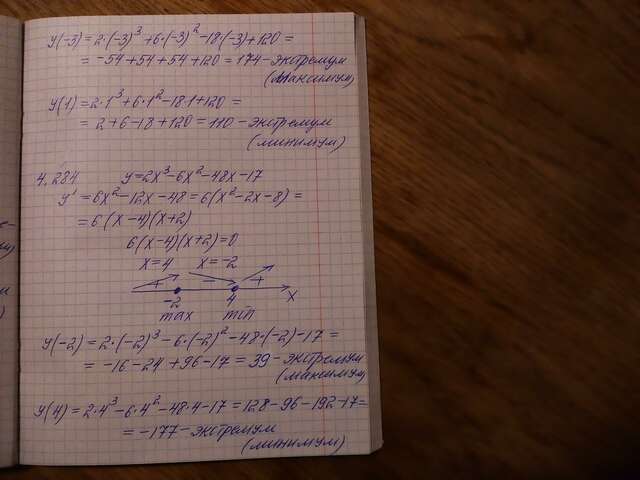 y(-3)=2·(-3)³+6·(-3)²-18·(-3)+120=
= -54+54+54+120=174-экстремум
(максимум)
y(1)=2·1³+6·1²-18·1+120=
= 2+6-18+120=110-экстремум
(минимум)
4.284 y=2x³-6x²-48x-17
y'=6x²-12x-48=6(x²-2x-8)=
=6(x-4)(x+2)
6(x-4)(x+2)=0
x=4 x=-2
+ - +
-2 4 x
max min
y(-2)=2·(-2)³-6·(-2)²-48·(-2)-17=
= -16-24+96-17=39-экстремум
(максимум)
y(4)=2·4³-6·4²-48·4-17=128-96-192-17=
= -177-экстремум
(минимум)